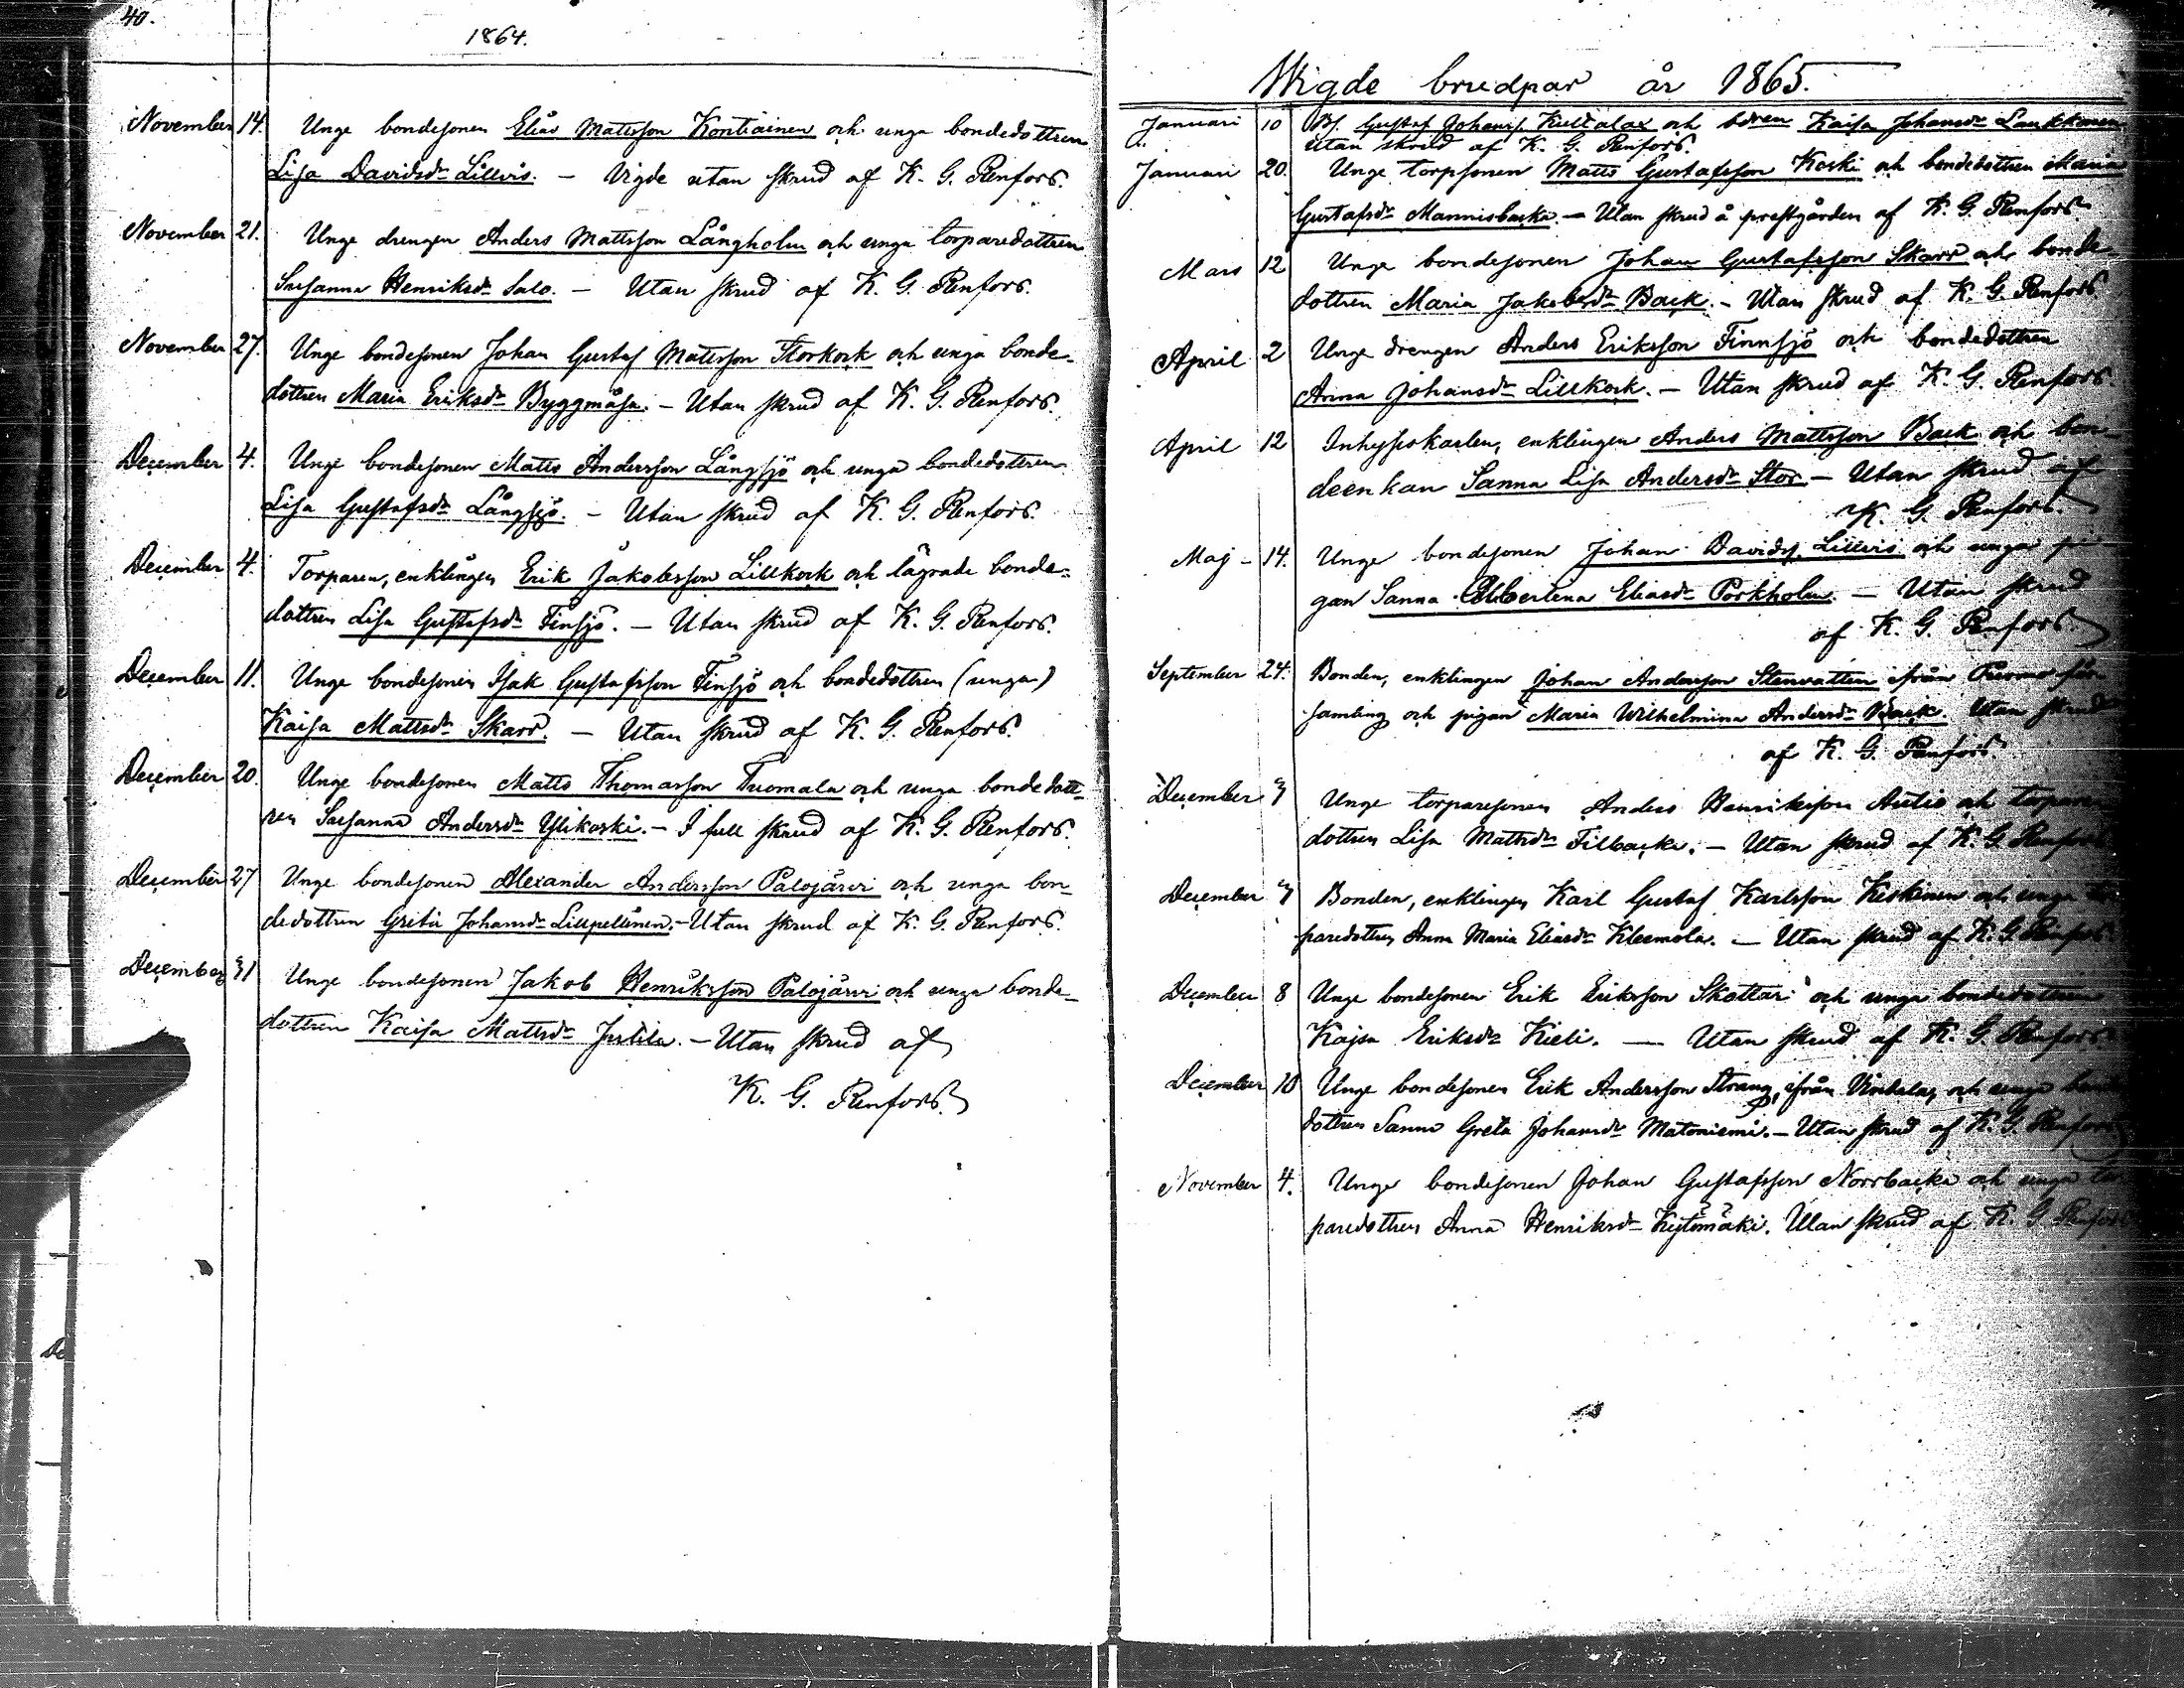 40.
1864.
November 14. Unge bondesonen Elias Mattsson Kontiainen och unga bondedottren
Lisa Davidsdr Lillvis. – Vigde utan skrud af K. G. Renfors.
November 21. Unge drengen Anders Mattsson Långholm och unga torparedottren
Susanna Henriksdr Salo. – Utan skrud af K. G. Renfors.
November 27. Unge bondesonen Johan Gustaf Mattsson Storkock och unga bonde-
dottren Maria Eriksdr Byggmåsa. – Utan skrud af K. G. Renfors.
December 4. Unge bondesonen Matts Andersson Långsjö och unga bondedottren
Lisa Gustafsdr Långsjö. – Utan skrud af K. G. Renfors.
December 4. Torparen, enklingen Erik Jakobsson Lillkock och lägrade bonde-
dottren Lisa Gustafsdr Finsjö. – Utan skrud af K. G. Renfors.
December 11. Unge bondesonen Isak Gustafsson Finsjö och bondedottren (unga)
Kaisa Mattsdr Skarr. – Utan skrud af K. G. Renfors.
December 20. Unge bondesonen Matts Thomasson Tuomala och unga bondedott-
ren Susanna Andersdr Ylikoski. – I full skrud af K. G. Renfors.
December 27 Unge bondesonen Alexander Andersson Palojärvi och unga bon-
dedottren Greta Johansdr Lillpellinen. – Utan skrud af K. G. Renfors.
December 31 Unge bondesonen Jakob Henriksson Palojärvi och unga bonde-
dottren Kaisa Mattsdr Jussila. – Utan skrud af
K. G. Renfors.
Wigde brudpar år 1865.
Januari 10 Bs. Gustaf Johans. Kullalax och bdren Kaisa Johansdr Laukkonen
utan skrud af K. G. Renfors.
Januari 20. Unge torpsonen Matts Gustafsson Koski och bondedottren Maria
Gustafsdr Mannisbacka. – Utan skrud å prestgården af K. G. Renfors
Mars 12 Unge bondesonen Johan Gustafsson Skarr och bonde-
dottren Maria Jakobsdr Back. – Utan skrud af K. G. Renfors
April 2 Unge drengen Anders Eriksson Finnsjö och bondedottren
Anna Johansdr Lillkock. – Utan skrud af K. G. Renfors.
April 12 Inhyseskarlen, enklingen Anders Mattsson Back och bon-
deenkan Sanna Lisa Andersdr Stor – Utan skrud af
K. G. Renfors.
Maj – 14. Unge bondesonen Johan Davids. Lillvis och unga pi-
gan Sanna Albertina Eliasdr Porkholm. – Utan skrud
af K. G. Renfors.
September 24. Bonden, enklingen Johan Andersson Stenvattin ifrån Purmo för-
samling och pigan Maria Wilhelmina Andersdr Back. Utan skrud
af K. G. Renfors.
December 3 Unge torparesonen Anders Henriksson Autio och torpare-
dottren Lisa Mattsdr Filbacka. – Utan skrud af K. G. Renfors
December 3 Bonden, enklingen Karl Gustaf Karlsson Keskinen och unga
paredottren Anna Maria Eliasdr Kleemola. – Utan skrud af K. G. Renfors
December 8 Unge bondesonen Erik Eriksson Skottari och unga bondedottren
Kajsa Eriksdr Kieli. – Utan skrud af K. G. Renfors.
December 10 Unge bondesonen Erik Andersson Strang, ifrån Vindala, och unga
dottren Sanna Greta Johansdr Matoniemi. – Utan skrud af K. G. Renfors
November 4. Unge bondesonen Johan Gustafsson Norrbacka och unga tor
paredottren Anna Henriksdr Kejtömäki. Utan skrud af K. G. Renfors